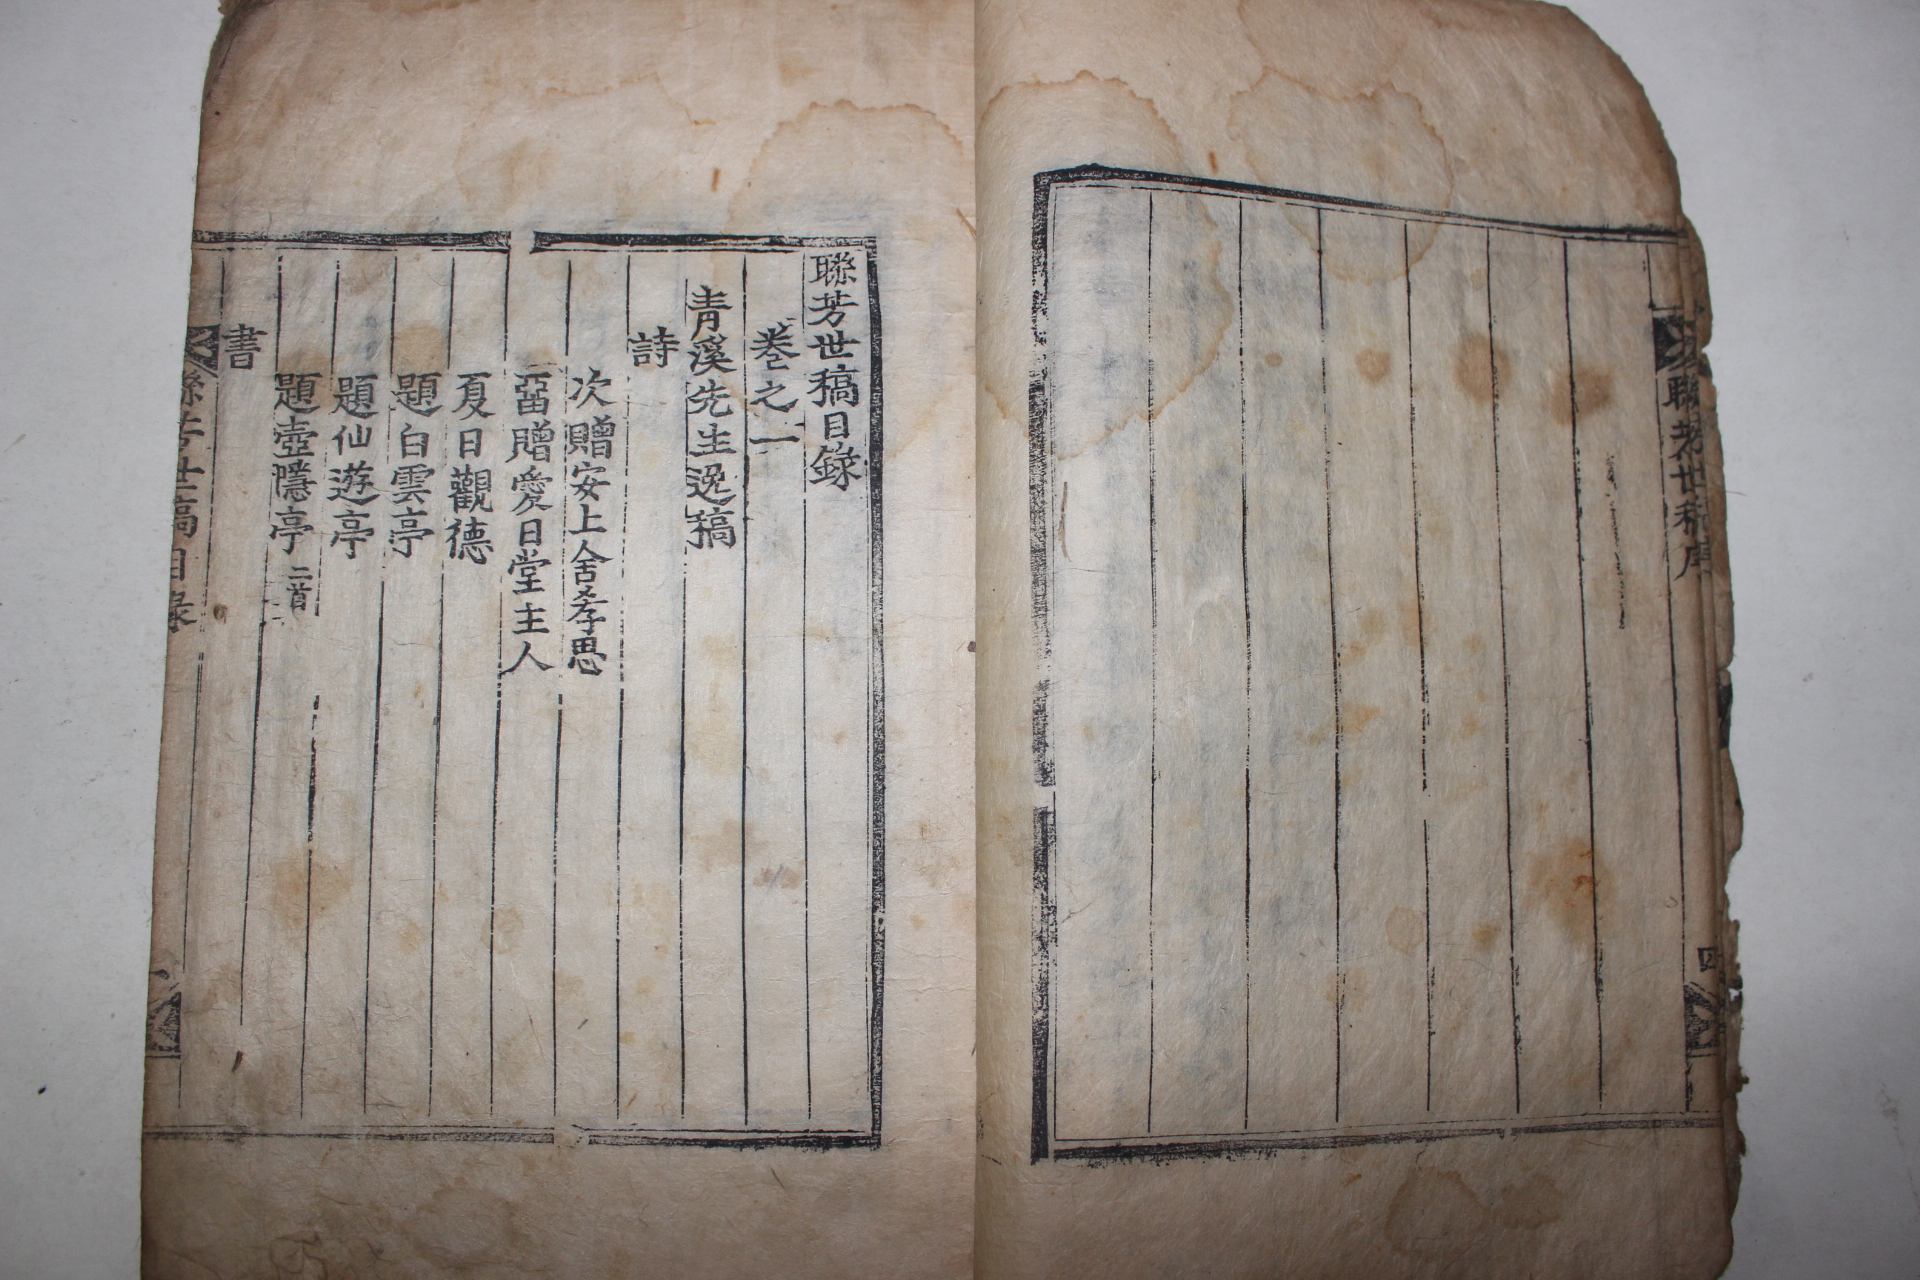 聯芳世稿序
四
聯芳世稿目錄
卷之一
青溪先生逸稿
詩
次贈安上舍孝思
留贈愛日堂主人
夏日觀德
題白雲亭
題仙遊亭
題壺隱亭 二首
書
聯芳世稿目錄